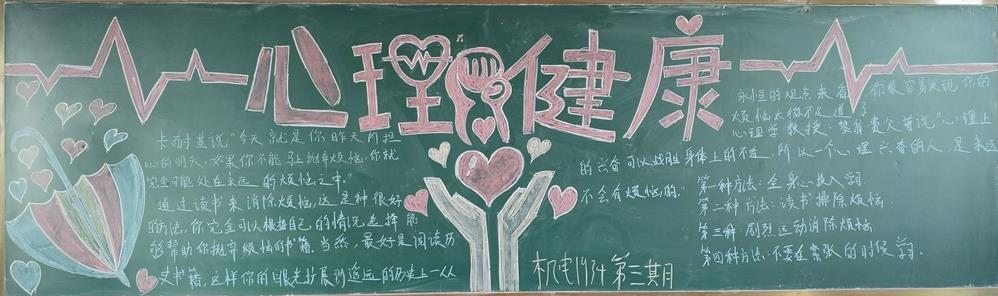 心理健康
卡耐基说:“今天就是你昨天所担
心的明天,如果你不能马上抛弃烦恼,你就
完全可能处在永远的烦恼之中.”
通过读书来消除烦恼,这是种很好
的方法,你完全可以根据自己的情况选择能
够帮助你抛弃烦恼的书籍.当然,最好是阅读历
史书籍,这样你的眼光扩展到遥远的历史上一从
永恒的观点来看,你很容易发现你的
烦恼太微不足道了
心理学教授:黎 曾说“心理上
的兴奋可以战胜身体上的不适,所以一个心理兴奋的人,是永远
不会有烦恼的.
第一种方法:全身心投入学习
第二种方法:读书排除烦恼
第三种 剧烈运动消除烦恼
第四种方法:不要在紧张的时候学习.
机电1934 第三期月